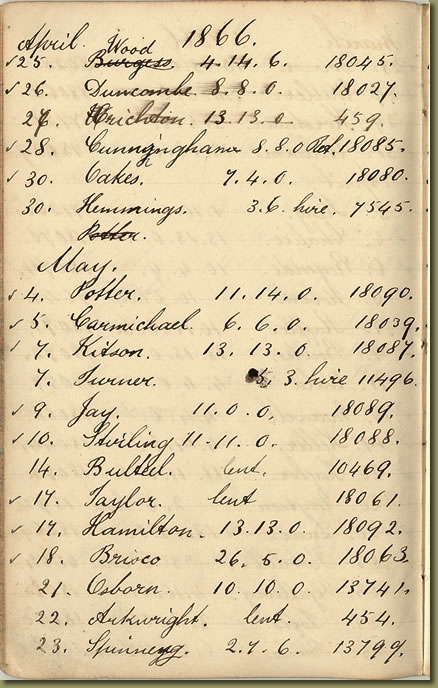 April. 1866.
Wood
✓ 25. Burgess. 4.14.6. 18045.
✓ 26. Duncombe. 8.8.0. 18027.
27. Crichton. 13.13.0. 459.
✓ 28. Cunninghame 8.8.0 Ret. 18085.
✓ 30. Oakes. 7.4.0. 18080.
30. Hemmings. 3.6. hire. 7545.
Potter.
May.
✓ 4. Potter. 11.14.0. 18090.
✓ 5. Carmichael. 6.6.0. 18039.
✓ 7. Kitson. 13.13.0. 18087.
7. Turner. 3. hire 11496.
✓ 9. Jay. 11.0.0. 18089.
✓ 10. Stirling 11.11.0. 18088.
14. Bulteel. lent. 10469.
✓ 17. Taylor. lent 18061.
✓ 17. Hamilton. 13.13.0. 18092.
✓ 18. Brisco 26.5.0. 18063.
21. Osborn. 10.10.0. 13741.
22. Arkwright. lent. 454.
23. Spinney. 2.7.6. 13799.